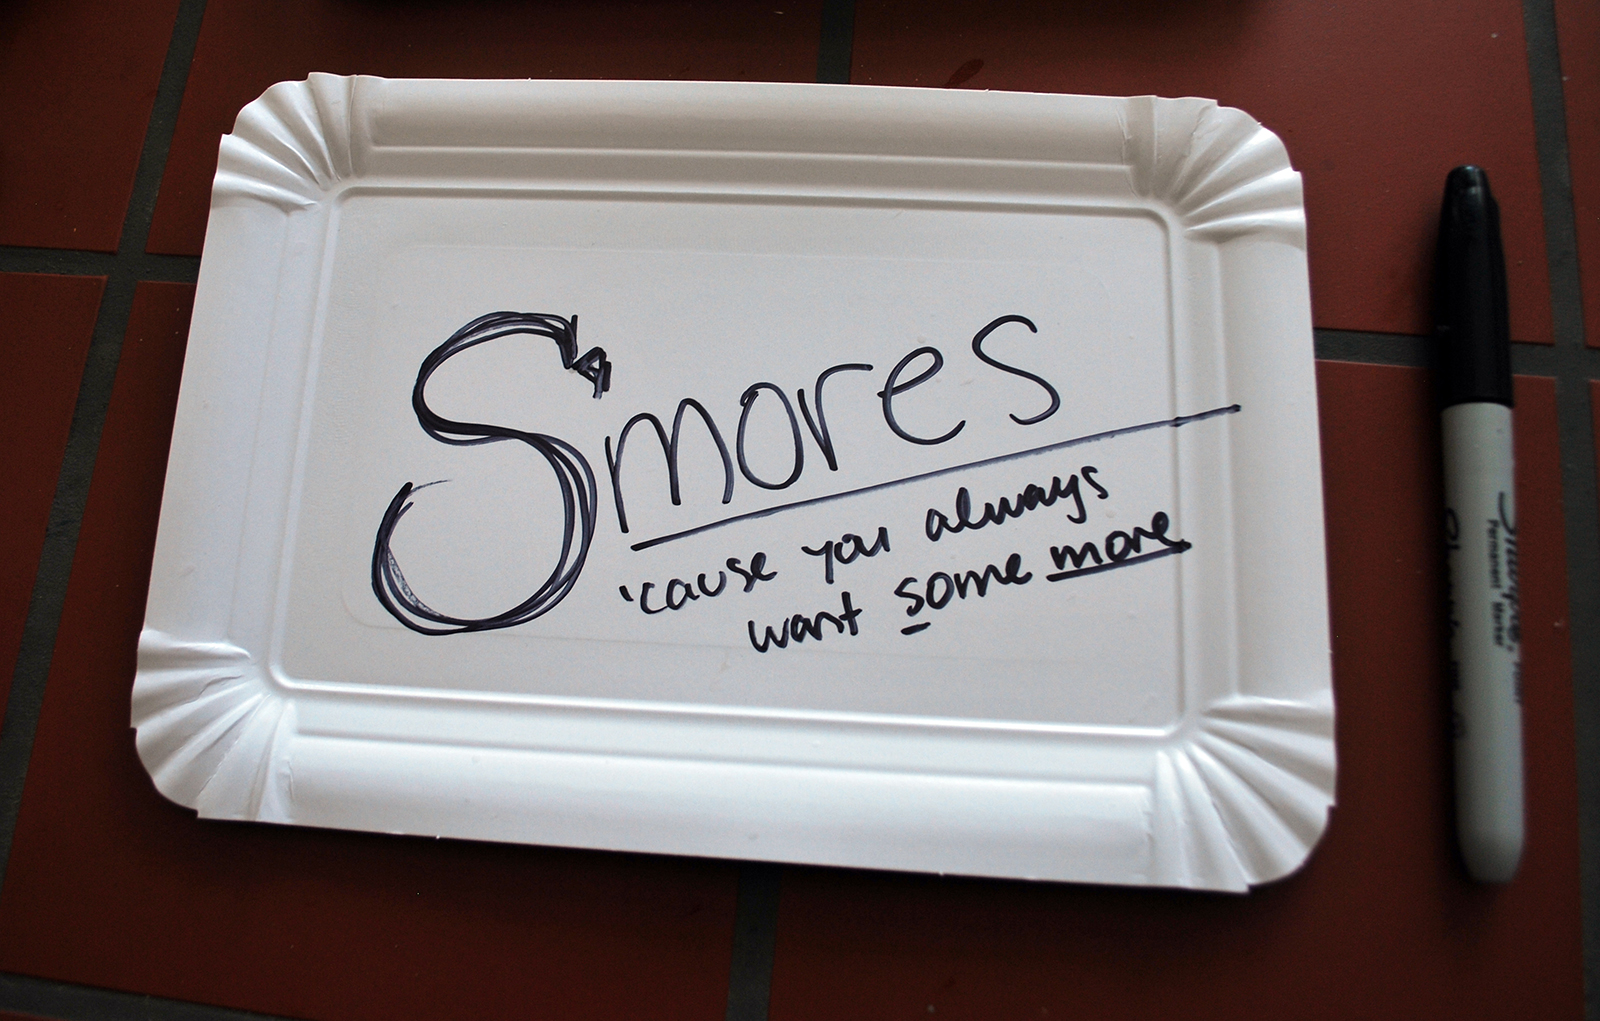 S'mores
'cause you always
want some more
Sharpie
Permanent Marker